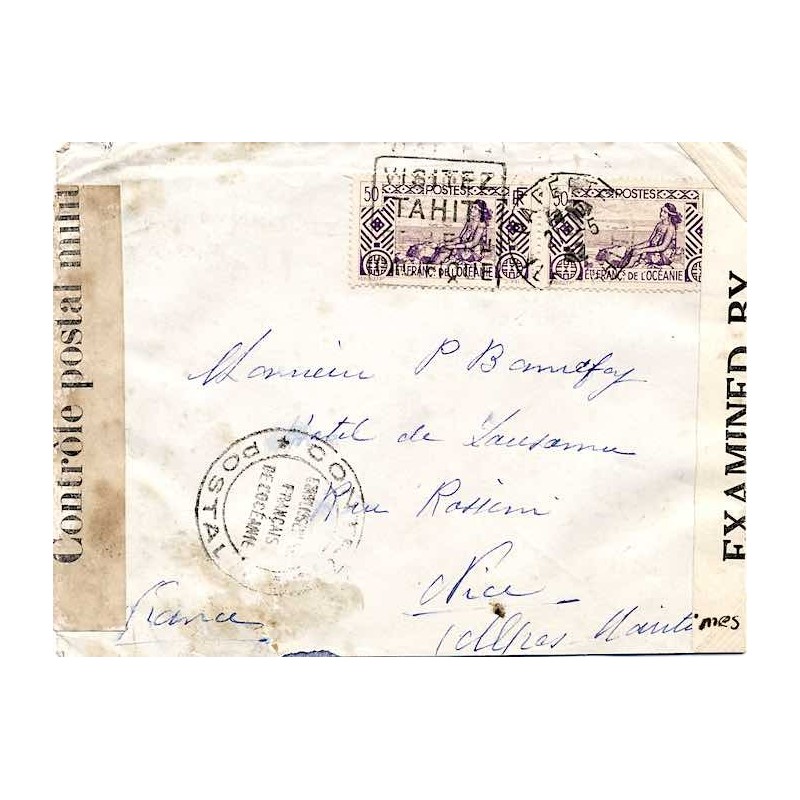 VISITEZ
TAHITI
50 POSTES RF
ETS FRANÇS DE L'OCÉANIE
50 POSTES
ETS FRANÇS DE L'OCÉANIE
Contrôle postal mili
EXAMINED BY
Monsieur P
Hotel de Lausanne
Rue Rossini
Nice
(Alpes-Maritimes
France
POSTAL
FRANÇAIS
DE L'OCÉANIE